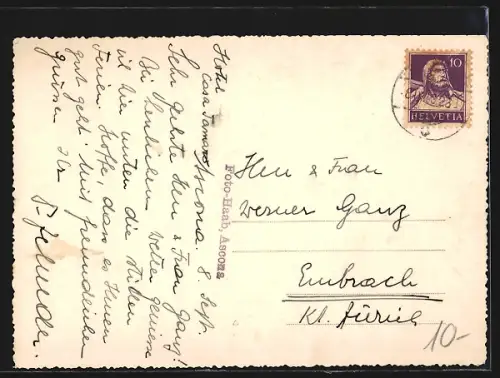 Hotel
Casa Tamaro Ascona. 8. Sept.
Sehr geehrte Herr & Frau Ganz!
Bei herrlichem Wetter geniesse
ich hier unten die stillen
Ferien. Hoffe, dass es Ihnen
gut geht. Mit freundlichen
Grüssen Ihr
Foto-Haab, Ascona
10
HELVETIA
Herr & Frau
Werner Ganz
Embrach
Kt. Zürich
10-